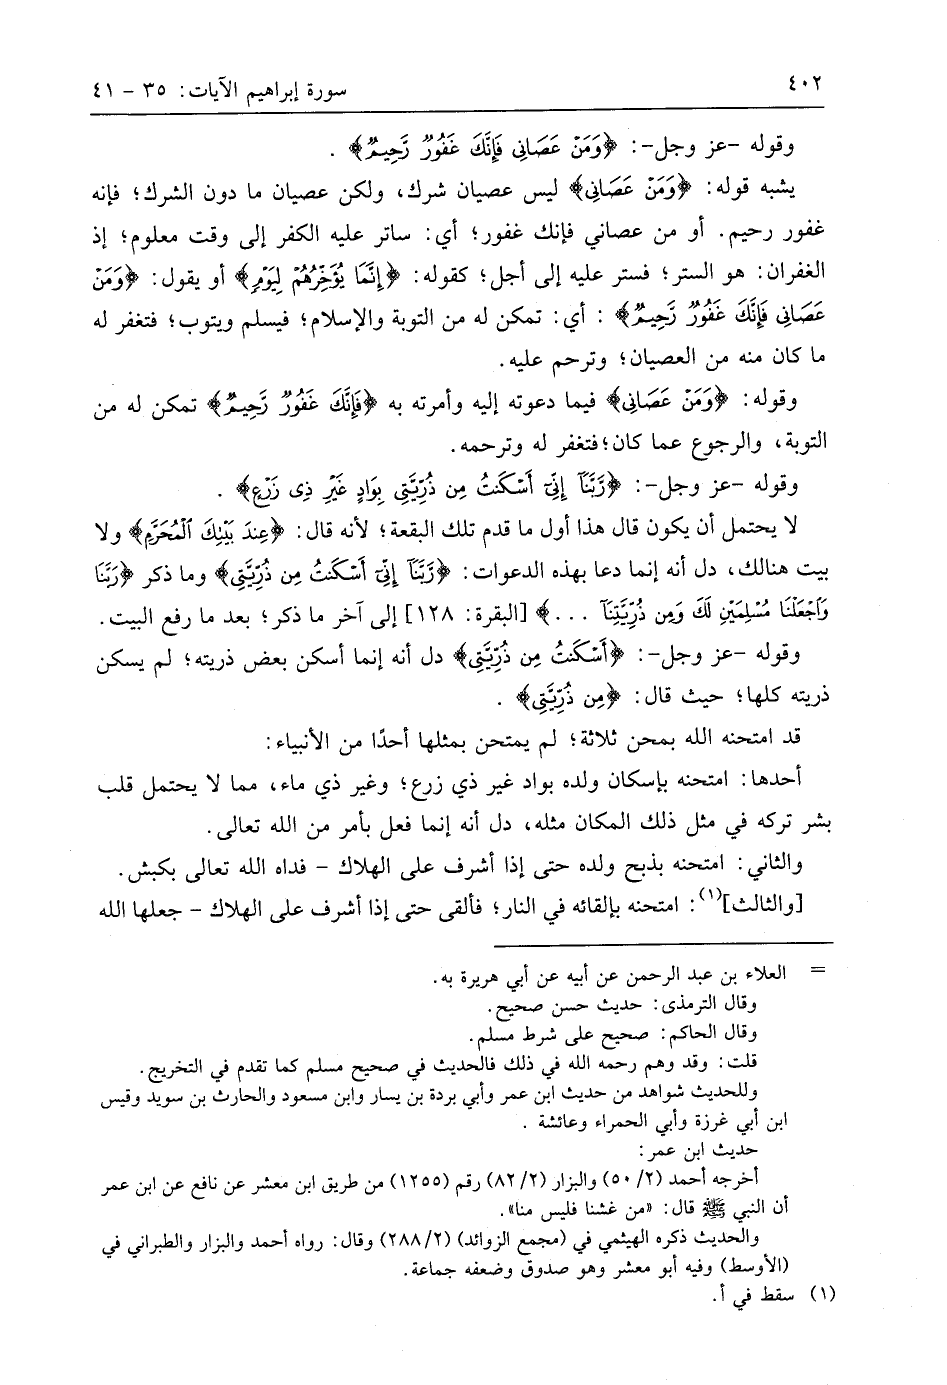 ٤٠٢
سورة إبراهيم الآيات: ٣٥ - ٤١
وقوله -عز وجل-: ﴿وَمَنْ عَصَانِي فَإِنَّكَ غَفُورٌ رَّحِيمٌ﴾ .
يشبه قوله: ﴿وَمَنْ عَصَانِي﴾ ليس عصيان شرك، ولكن عصيان ما دون الشرك؛ فإنه
غفور رحيم. أو من عصاني فإنك غفور؛ أي: ساتر عليه الكفر إلى وقت معلوم؛ إذ
الغفران: هو الستر؛ فستر عليه إلى أجل؛ كقوله: ﴿إِنَّمَا يُؤَخِّرُهُمْ لِيَوْمٍ﴾ أو يقول: ﴿وَمَنْ
عَصَانِي فَإِنَّكَ غَفُورٌ رَّحِيمٌ﴾ : أي: تمكن له من التوبة والإسلام؛ فيسلم ويتوب؛ فتغفر له
ما كان منه من العصيان؛ وترحم عليه.
وقوله: ﴿وَمَنْ عَصَانِي﴾ فيما دعوته إليه وأمرته به ﴿فَإِنَّكَ غَفُورٌ رَّحِيمٌ﴾ تمكن له من
التوبة، والرجوع عما كان؛فتغفر له وترحمه.
وقوله -عز وجل-: ﴿رَّبَّنَآ إِنِّيٓ أَسْكَنتُ مِن ذُرِّيَّتِي بِوَادٍ غَيْرِ ذِي زَرْعٍ﴾ .
لا يحتمل أن يكون قال هذا أول ما قدم تلك البقعة؛ لأنه قال: ﴿عِندَ بَيْتِكَ ٱلْمُحَرَّمِ﴾ ولا
بيت هنالك، دل أنه إنما دعا بهذه الدعوات: ﴿رَّبَّنَآ إِنِّيٓ أَسْكَنتُ مِن ذُرِّيَّتِي﴾ وما ذكر ﴿رَبَّنَا
وَٱجْعَلْنَا مُسْلِمَيْنِ لَكَ وَمِن ذُرِّيَّتِنَآ ...﴾ [البقرة: ١٢٨] إلى آخر ما ذكر؛ بعد ما رفع البيت.
وقوله -عز وجل-: ﴿أَسْكَنتُ مِن ذُرِّيَّتِي﴾ دل أنه إنما أسكن بعض ذريته؛ لم يسكن
ذريته كلها؛ حيث قال: ﴿مِن ذُرِّيَّتِي﴾ .
قد امتحنه الله بمحن ثلاثة؛ لم يمتحن بمثلها أحدًا من الأنبياء:
أحدها: امتحنه بإسكان ولده بواد غير ذي زرع؛ وغير ذي ماء، مما لا يحتمل قلب
بشر تركه في مثل ذلك المكان مثله، دل أنه إنما فعل بأمر من الله تعالى.
والثاني: امتحنه بذبح ولده حتى إذا أشرف على الهلاك - فداه الله تعالى بكبش.
[والثالث](١): امتحنه بإلقائه في النار؛ فألقى حتى إذا أشرف على الهلاك - جعلها الله
= العلاء بن عبد الرحمن عن أبيه عن أبي هريرة به.
وقال الترمذى: حديث حسن صحيح.
وقال الحاكم: صحيح على شرط مسلم.
قلت: وقد وهم رحمه الله في ذلك فالحديث في صحيح مسلم كما تقدم في التخريج.
وللحديث شواهد من حديث ابن عمر وأبي بردة بن يسار وابن مسعود والحارث بن سويد وقيس
ابن أبي غرزة وأبي الحمراء وعائشة .
حديث ابن عمر:
أخرجه أحمد (٢/ ٥٠) والبزار (٨٢/٢) رقم (١٢٥٥) من طريق ابن معشر عن نافع عن ابن عمر
أن النبي ﷺ قال: «من غشنا فليس منا».
والحديث ذكره الهيثمي في (مجمع الزوائد) (٢٨٨/٢) وقال: رواه أحمد والبزار والطبراني في
(الأوسط) وفيه أبو معشر وهو صدوق وضعفه جماعة.
(١) سقط في أ.